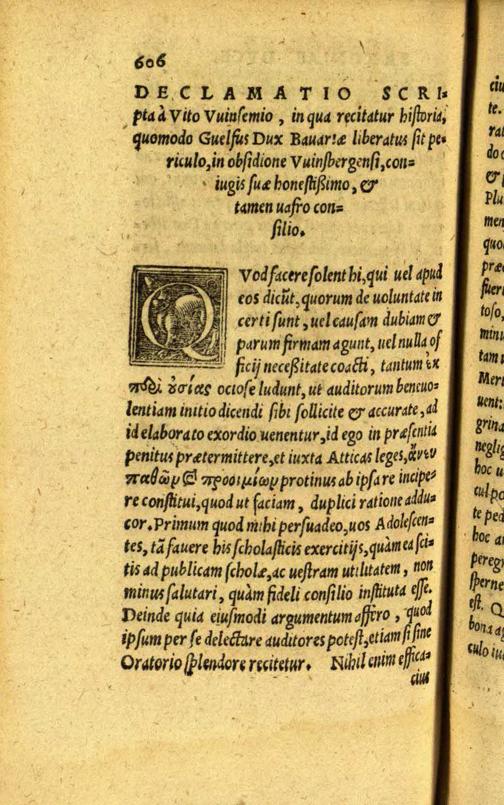 606
DECLAMATIO SCRI-
pta à Vito Vuinsemio, in qua recitatur historia,
quomodo Guelfus Dux Bauariæ liberatus sit pe-
riculo, in obsidione Vuinsbergensi, con-
iugis suæ honestißimo, &
tamen uafro con-
silio.
QVod facere solent hi, qui uel apud
eos dicũt, quorum de uoluntate in
certi sunt, uel causam dubiam &
parum firmam agunt, uel nulla of
ficij neceßitate coacti, tantum ἐκ
οὐσίας ociose ludunt, ut auditorum beneuo-
lentiam initio dicendi sibi sollicite & accurate, ad
id elaborato exordio uenentur, id ego in præsentia
penitus prætermittere, et iuxta Atticas leges, ἄνευ
παθῶν καὶ προοιμίων protinus ab ipsa re incipe-
re constitui, quod ut faciam, duplici ratione addu-
cor. Primum quod mihi persuadeo, uos Adolescen-
tes, tã fauere his scholasticis exercitijs, quàm ea sci-
tis ad publicam scholæ, ac uestram utilitatem, non
minus salutari, quàm fideli consilio instituta esse.
Deinde quia eiusmodi argumentum affero, quod
ipsum per se delectare auditores potest, etiam si sine
Oratorio splendore recitetur. Nihil enim effica-
cius
ciu
te.
rat
do c
&
Plu
men
quo
præ
fuer
toso,
minu
tam
Meri
uent:
grina
neglig
hoc u
culpo
te ped
hoc a
peregr
sperne
est. Q
bona a
culo iu